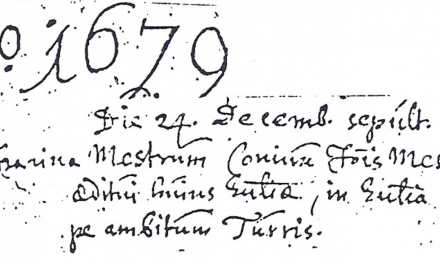 o. 1679
Die 24. Decemb. sepult.
Mestrum Coniux Jois Mes
Æditui huius Eccliæ, in Ecclia
pe ambitum Turris.